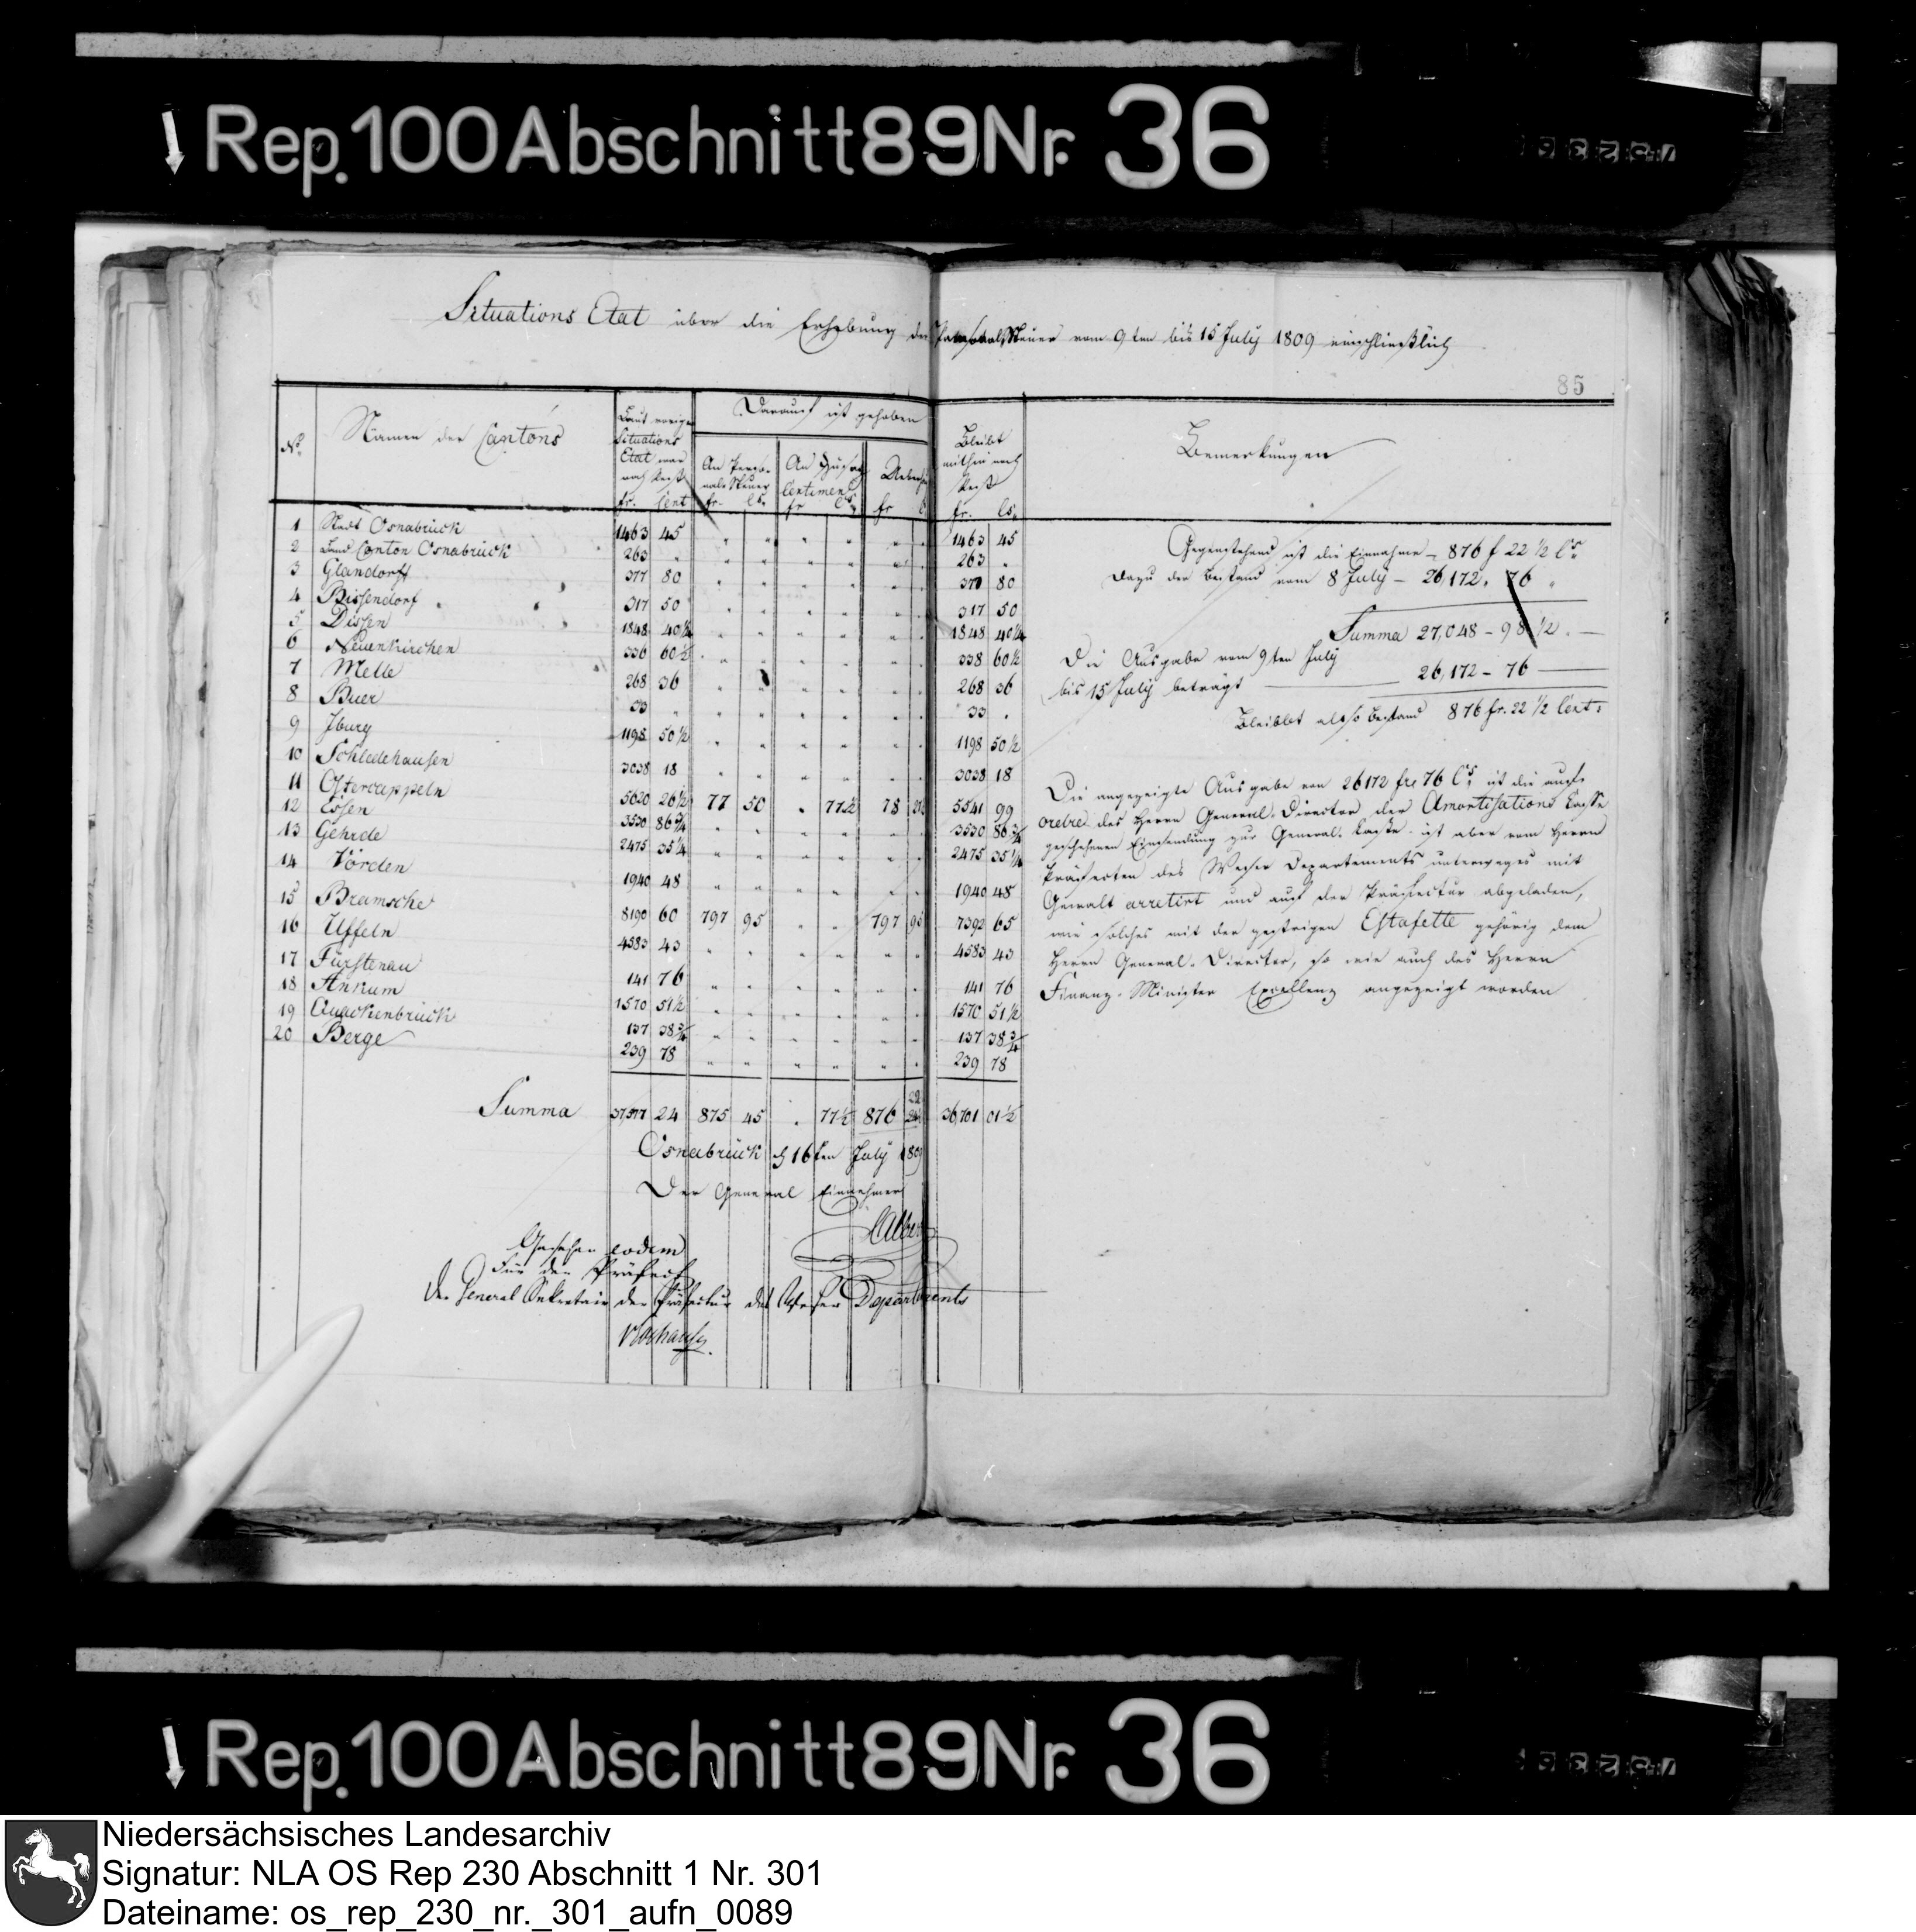 Rep. 100 Abschnitt 89 Nr. 36
Situations Etat über die Erhebung der Personal Steuer vom 9ten bis 15 July 1809 einschließlich
85
No. Namen der Cantons Laut vorigen Situations Etat war noch Rest fr. Cent Darauf ist gehoben An Personal Steuer fr. Cs. An Zusatz Centimen fr Cs. fr Bleibt mithin noch Rest fr. Cs. Bemerkungen
1 Stadt Osnabrück 1463 45 " " " " " " 1463 45
2 Land Canton Osnabrück 263 " " " " " " " 263 "
3 Glandorff 377 80 " " " " " " 80
4 Bissendorf 317 50 " " " " " " 317 50
5 Dissen 1848 40 1/4 " " " " " " 1848 40 1/4
6 Neuenkirchen 60 1/2 " " " " " " 338 60 1/2
7 Melle 268 36 " " " " " " 268 36
8 Buer 33 " " " " " " " 33 "
9 Iburg 1198 50 1/2 " " " " " " 1198 50 1/2
10 Schledehausen 3038 18 " " " " " " 3038 18
11 Ostercappeln 5620 26 1/2 77 50 " 77 1/2 78 5541 99
12 Essen 3530 86 3/4 " " " " " " 3530 86 3/4
13 Gehrde 2475 35 1/4 " " " " " " 2475 35 1/4
14 Vörden 1940 48 " " " " " " 1940 48
15 Bramsche 8190 60 797 95 " " 797 95 7392 65
16 Uffeln 4583 43 " " " " " " 4583 43
17 Fürstenau 141 76 " " " " " " 141 76
18 Ankum 1570 51 1/2 " " " " " " 1570 51 1/2
19 Quackenbrück 137 38 3/4 " " " " " " 137 38 3/4
20 Berge 239 78 " " " " " " 239 78
Summa 37,577 24 875 45 " 77 1/2 876 22 36,701 01 1/2
Osnabrück d 16ten July 1809
Der General Einnehmer
Gesehen eodem
Für den Präfect
Der General Sekretair der Präfectur des Weser Departements
Gegenstehend ist die Einnahme - 876 f 22 1/2 Cs.
Dazu der Bestand vom 8 July - 26,172. 76 "
Summa 27,048 - 98 1/2. -
Die Ausgabe vom 9ten July
bis 15 July beträgt 26,172 - 76
Bleibet also Bestand 876 fr. 22 1/2 Cent:
Die angezeigte Ausgabe von 26172 fr. 76 Cs. ist die auf
ordre des Herrn General-Director der Amortisations Casse
geschehene Einsendung zur General-Casse, ist aber vom Herrn
Präfecten des Weser Departements unterweges mit
Gewalt arretirt und auf der Präfectur abgeladen,
wie solches mit der gestrigen Estafette gehörig dem
Herrn General-Director, so wie auch des Herrn
Finanz-Minister Excellenz angezeigt worden
Rep. 100 Abschnitt 89 Nr. 36
Niedersächsisches Landesarchiv
Signatur: NLA OS Rep 230 Abschnitt 1 Nr. 301
Dateiname: os_rep_230_nr._301_aufn_0089